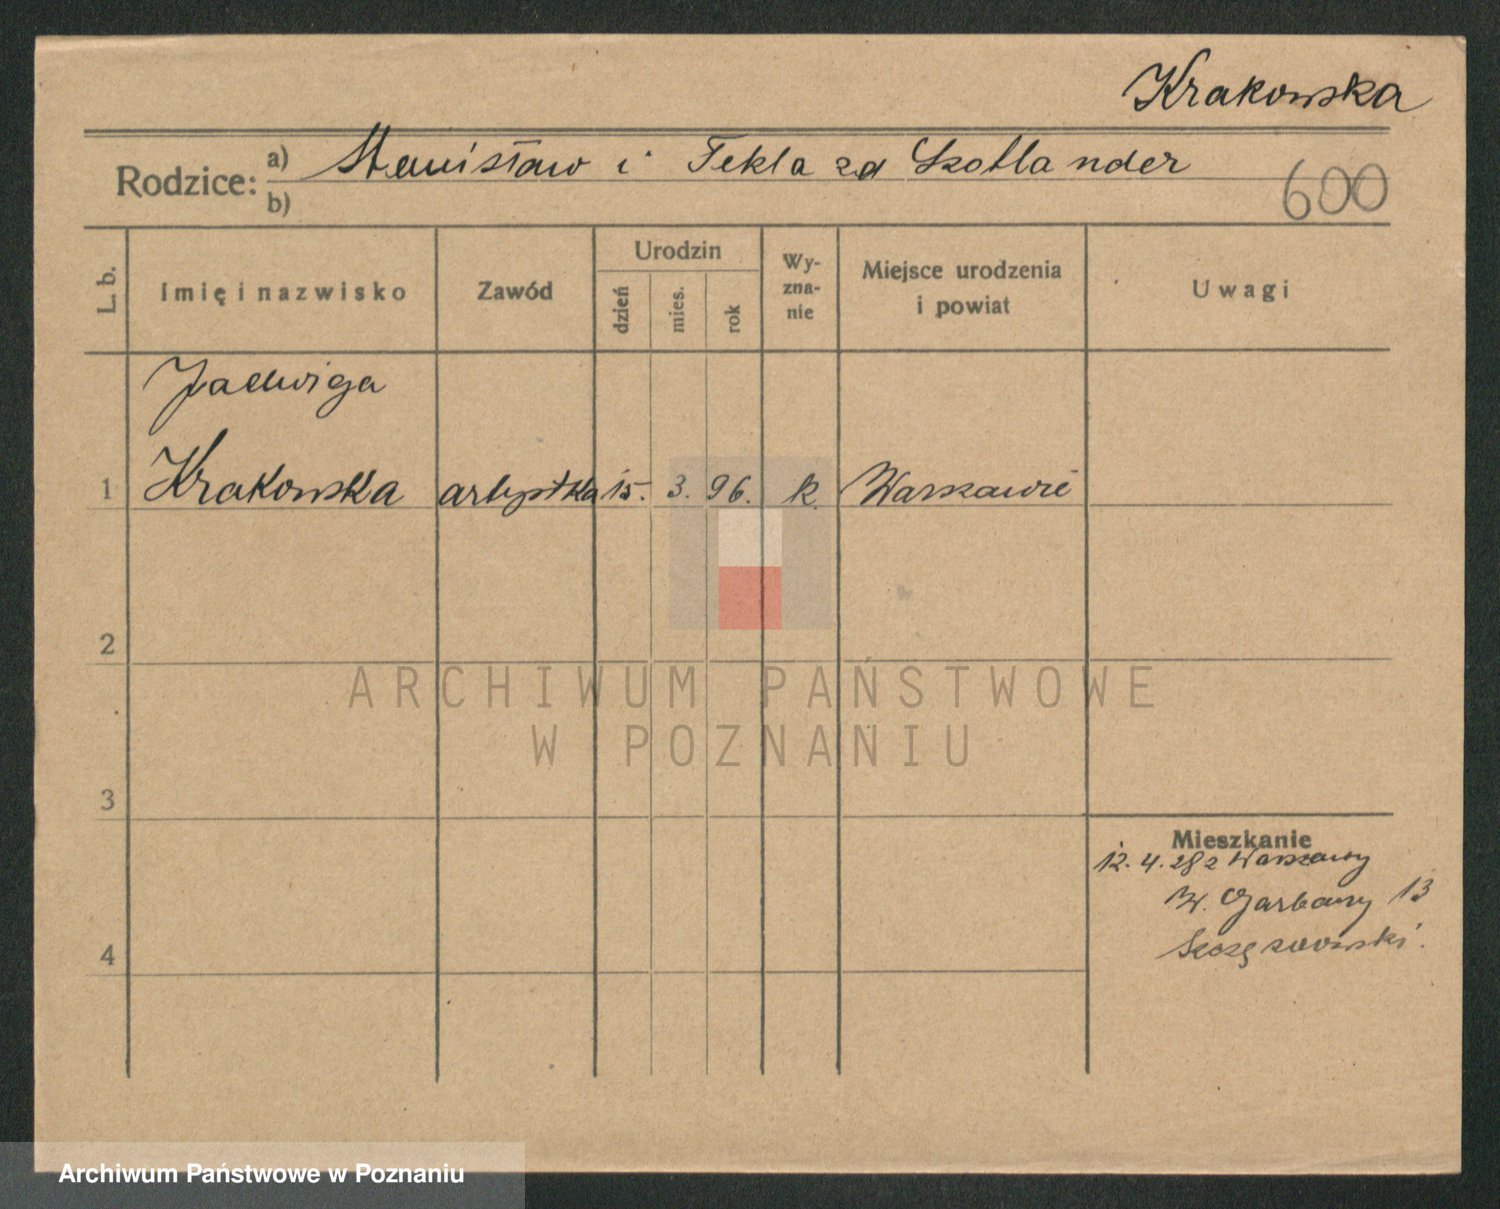 Krakowska
Rodzice: a) Stanisław i Tekla zd Szotlander
b)
600
L. b.
Imię i nazwisko
Zawód
Urodzin
dzień
mies.
rok
Wy-
zna-
nie
Miejsce urodzenia
i powiat
Uwagi
Jadwiga
1 Krakowska artystka 15. 3. 96. k. Warszawie
2
3
4
Mieszkanie
12.4.28 z Warszawy
W. Garbary 13
ARCHIWUM PAŃSTWOWE
W POZNANIU
Archiwum Państwowe w Poznaniu